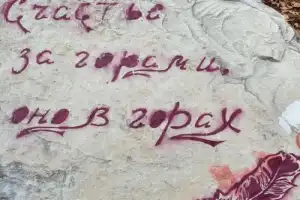 Счастье
за горами,
оно в горах